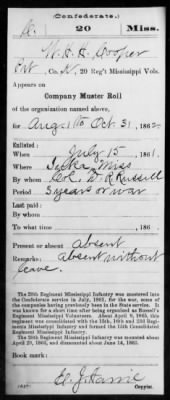 (Confederate.)
C. 20 Miss.
W. H. H. Cooper
Pvt, Co. K, 20 Reg't Mississippi Vols.
Appears on
Company Muster Roll
of the organization named above,
for Aug 1 to Oct 31, 1862.
Enlisted:
When July 15, 1861.
Where Iuka, Miss
By whom Col. D. R. Russell
Period 3 years or war
Last paid:
By whom
To what time , 186 .
Present or absent absent
Remarks: absent without
leave.
The 20th Regiment Mississippi Infantry was mustered into
the Confederate service in July, 1861, for the war, some of
the companies having previously been in the State service. It
was known for a short time after being organized as Russell's
Regiment Mississippi Volunteers. About April 9, 1865, this
regiment was consolidated with the 15th, 16th and 23d Regi-
ments Mississippi Infantry and formed the 15th Consolidated
Regiment Mississippi Infantry.
Book mark:
Copyist.